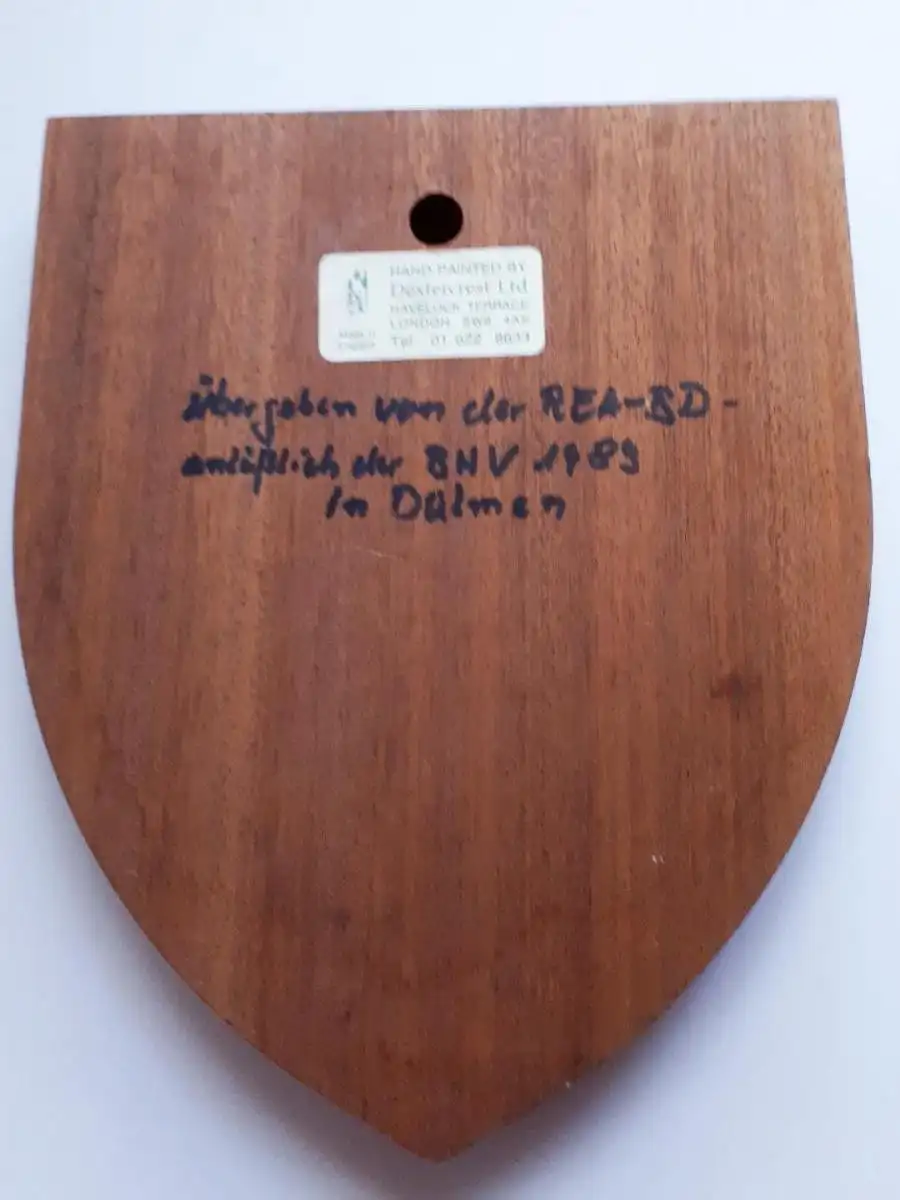 HAND-PAINTED BY
Dextercrest Ltd
HAVELOCK TERRACE
LONDON SW8 4AS
Made in
England
Tel 01 622
übergeben von der REA-BD-
anläßlich der BHV 1989
in Dülmen